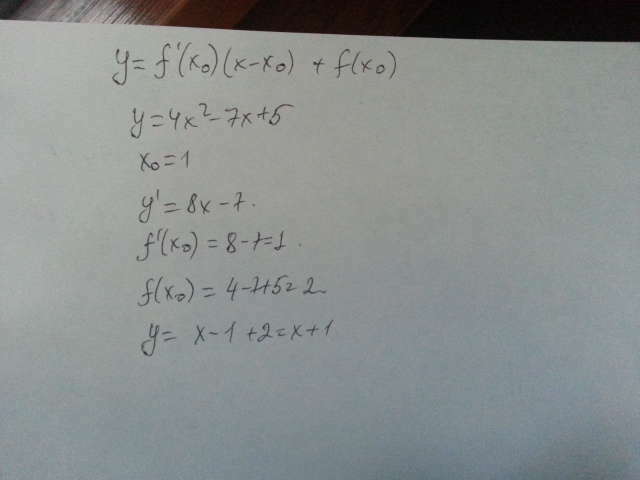 y = f'(x₀)(x-x₀) + f(x₀)
y = 4x²-7x+5
x₀ = 1
y' = 8x-7.
f'(x₀) = 8-7=1.
f(x₀) = 4-7+5=2
y = x-1+2=x+1